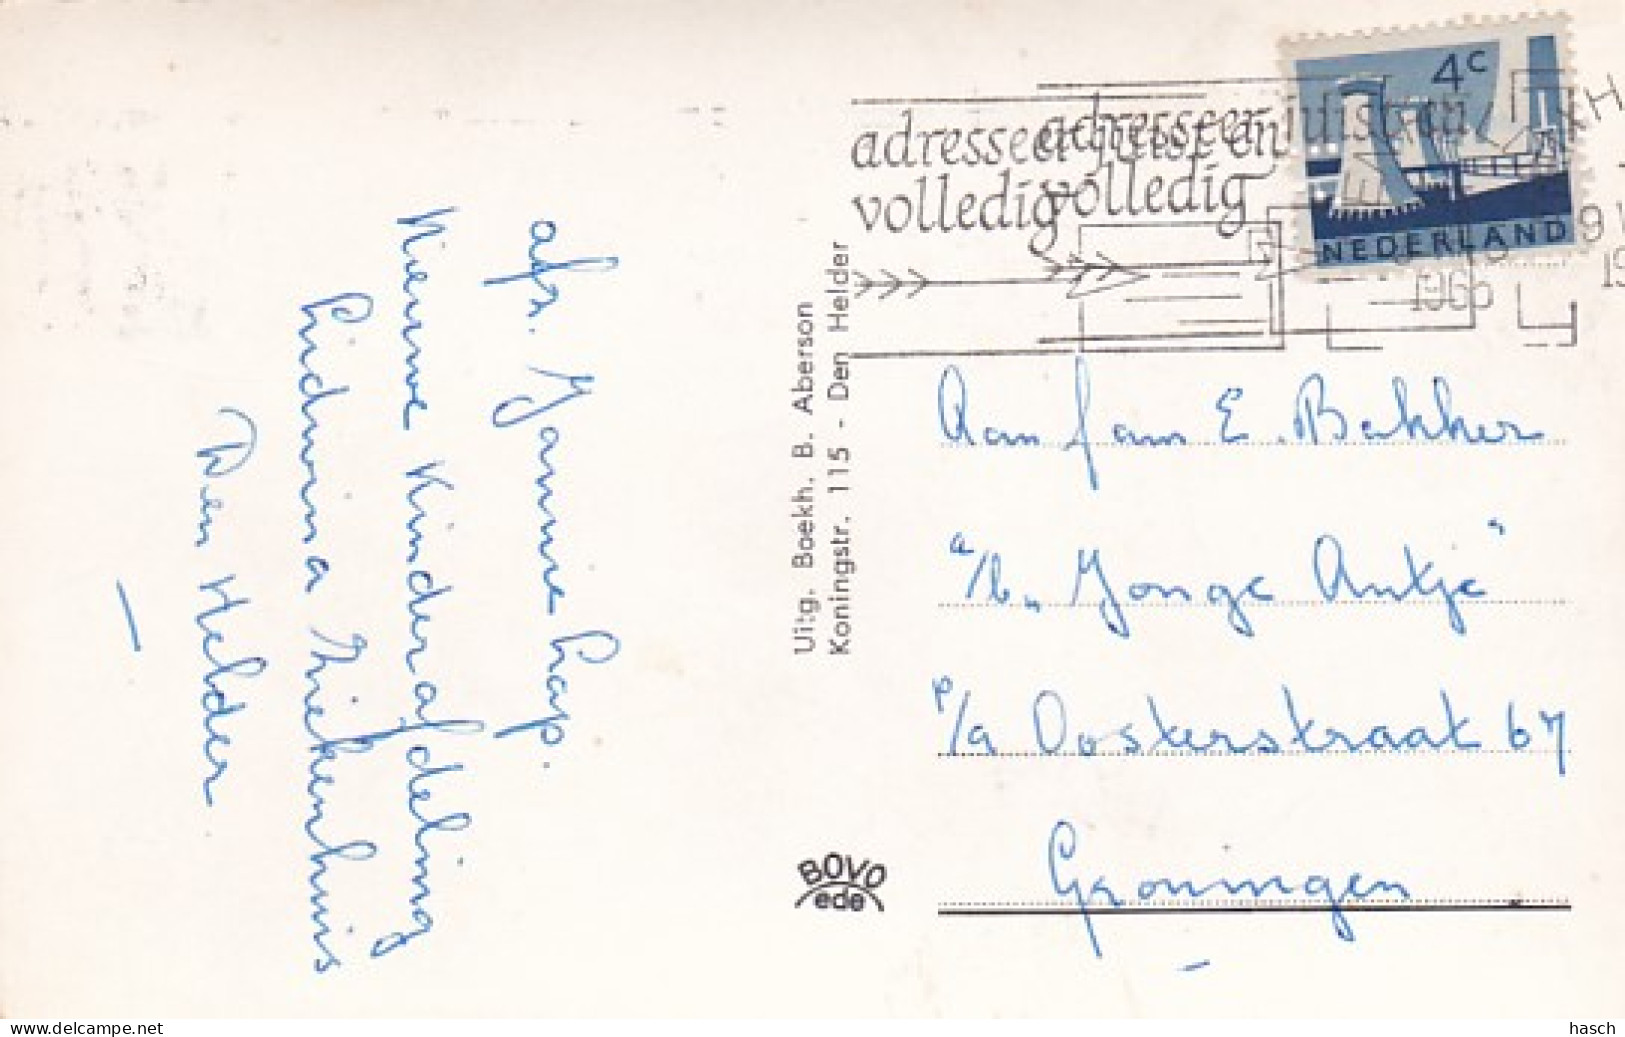 afz. Jannie Kap.
Nieuwe Kinderafdeling
Lidwina Ziekenhuis
Den Helder
Uitg. Boekh. B. Aberson
Koningstr. 115 - Den Helder
BOVO
ede
4c
NEDERLAND
adresseer juist en
volledig
adresseer juist en
volledig
1966
Aan fam E. Bakker
a/b „Jonge Antje"
p/a Oosterstraat 67
Groningen
delcampe.net
hasch